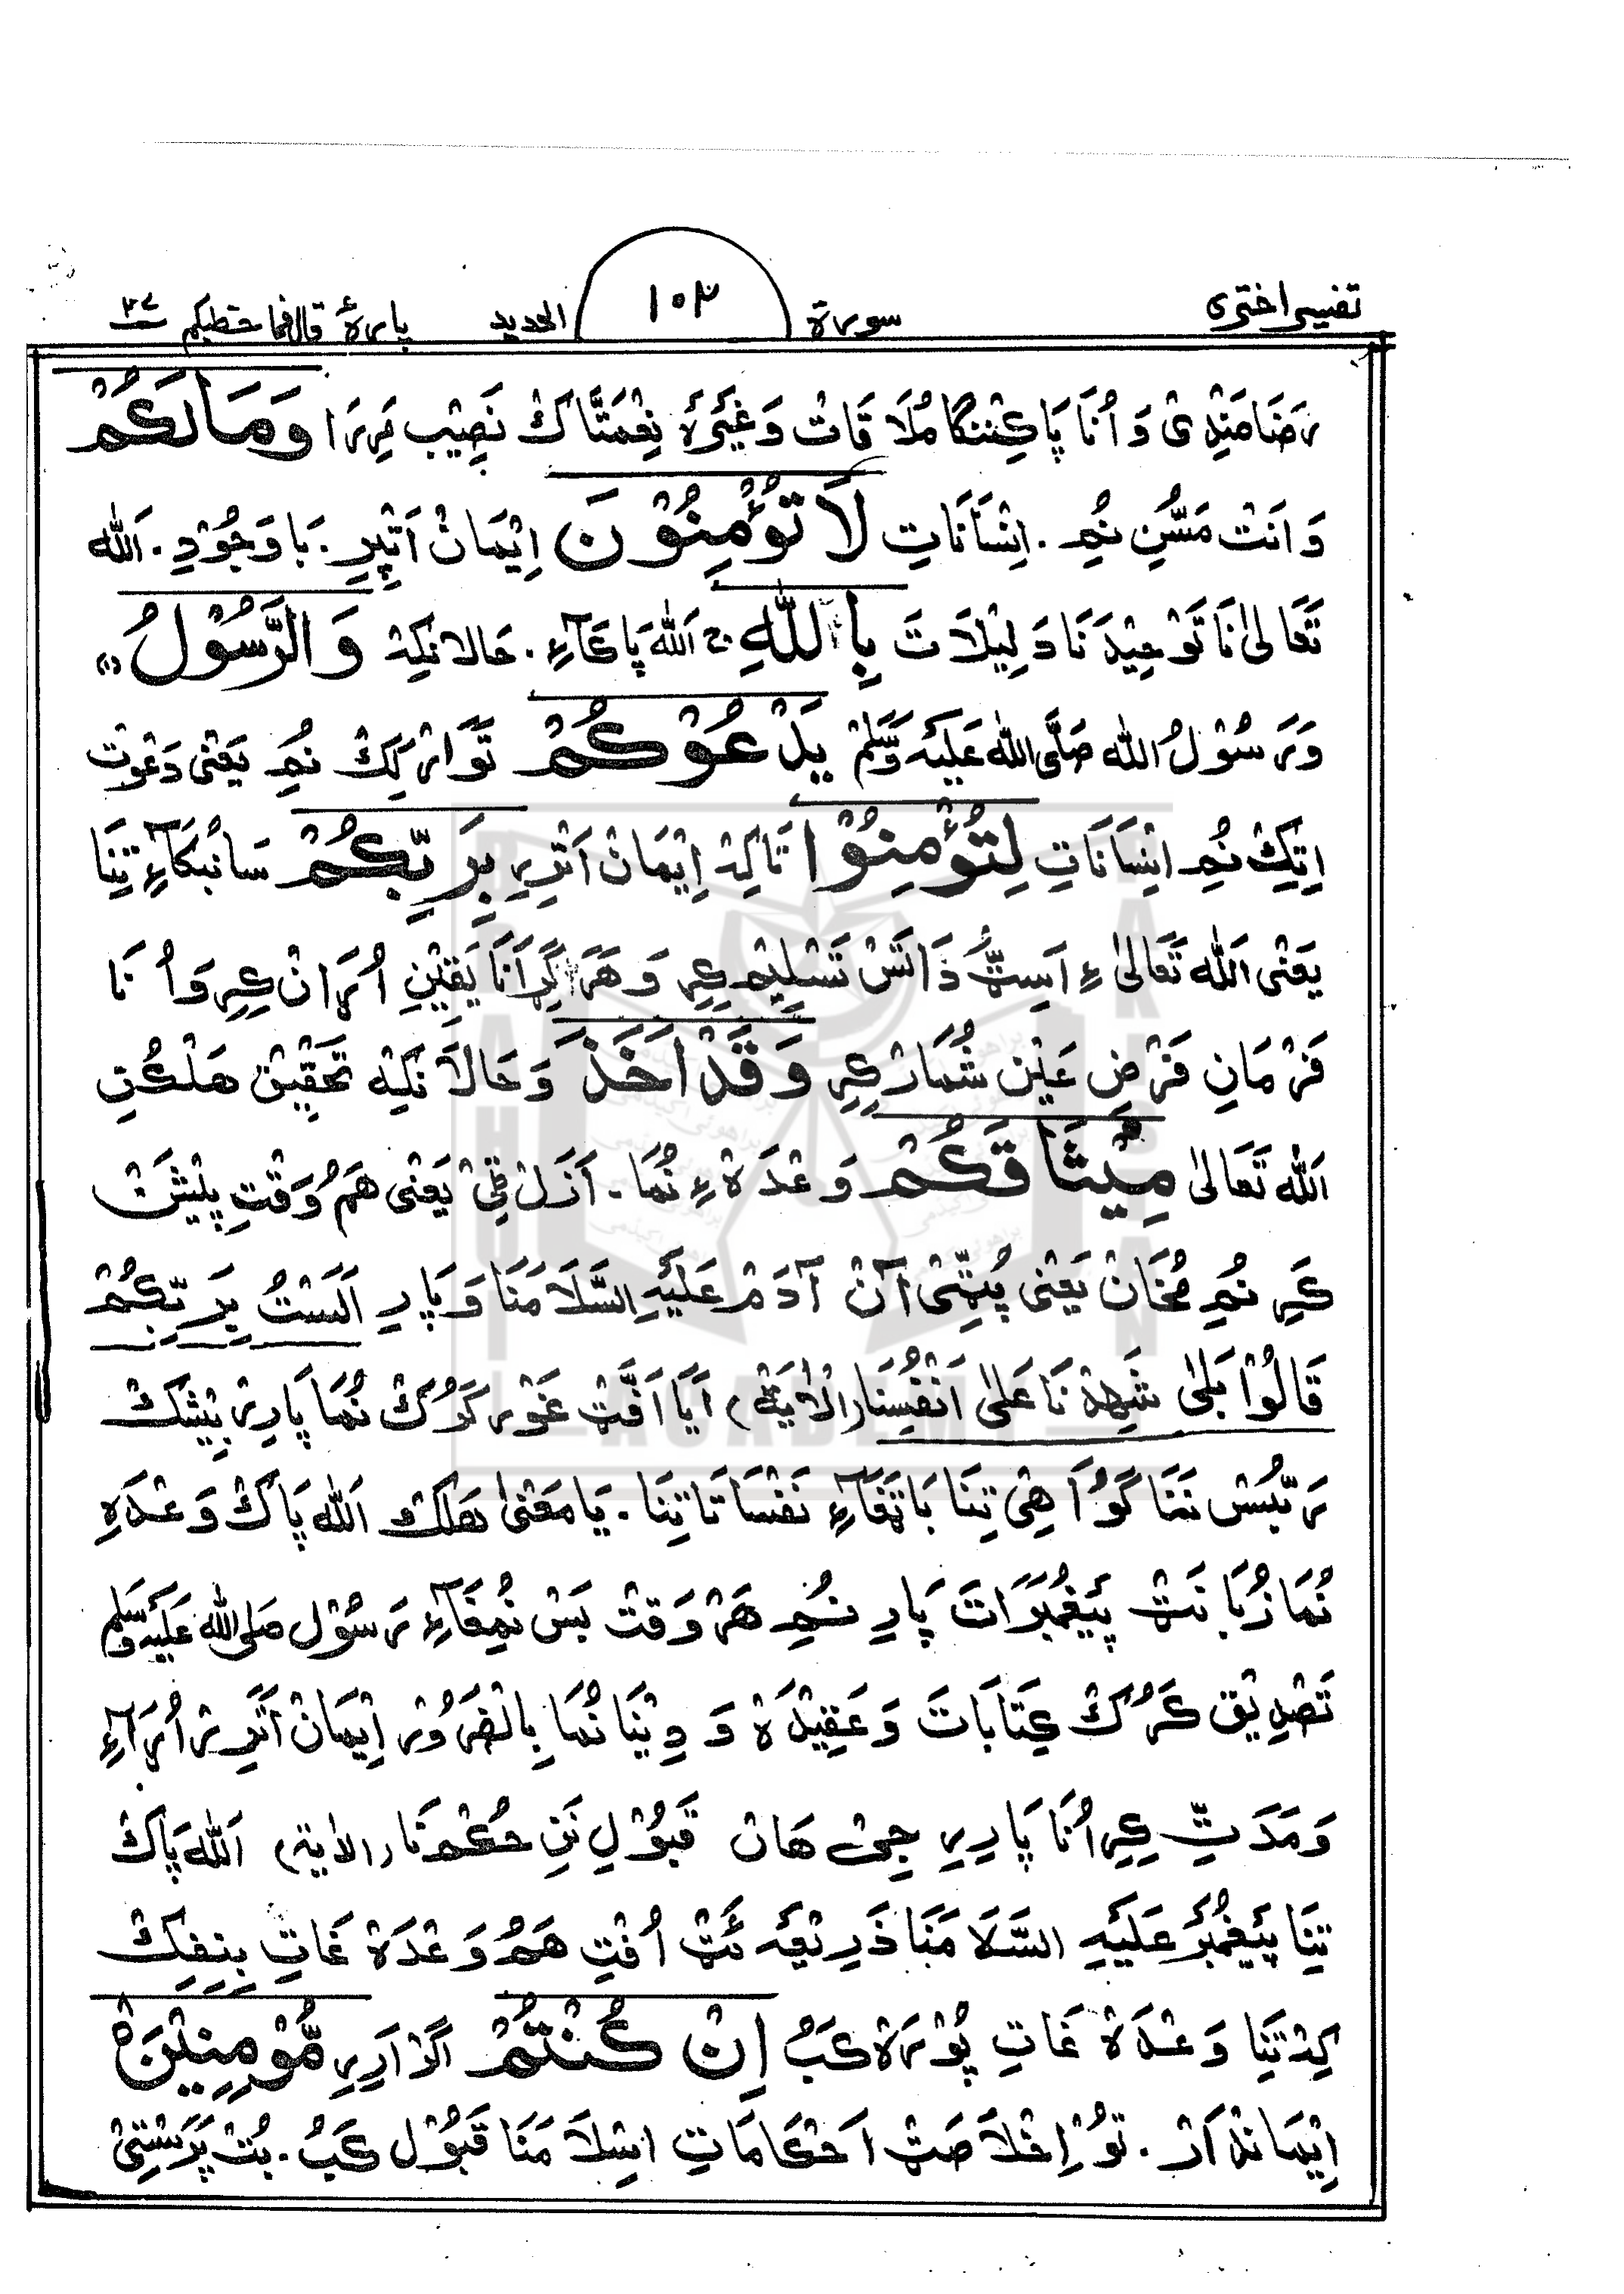 تفسیر اختری سورة ١٠٣ الحديد پارۀ قال فما خطبكم ٢٧
رَضَامَنْدِیْ وَ اُنَا پَاکِتِنْگَا مُلَا قَاتْ وَغَیْرَہْ نِعْمَتَّاکْ نَصِیْب مَرِرَا وَمَالَكُمْ
وَ اَنْتْ مَسُّنِ نُمِ . اِنْسَانَاتِ لَا تُؤْمِنُوْنَ اِیْمَانْ اَتِپِرِ . بَا وَجُوْدِ . اَللّٰه
تَعَالیٰ نَا تَوْحِیْدَ نَا دَلِیْلَاتَ بِاللّٰهِ ج اَللّٰه پَاکَآءِ . حَالانکِہْ وَالرَّسُوْلُ
وَرَسُوْلُ اللّٰه صَلَّی اللّٰه عَلَیْہِ وَسَلَّمْ يَدْعُوْكُمْ تَوَارْکِکْ نُمِ یَعْنٰی دَعْوَت
اِتِکْ نُمِ اِنْسَانَاتِ لِتُؤْمِنُوْا تَاکِہْ اِیْمَانْ اَتْرِرِ بِرَبِّكُمْ سَائِبْکَاءِ تِنَا
یَعْنٰی اَللّٰه تَعَالیٰ ءِ اَسِٹّ ذَاتَسْ تَسْلِیْم کِرِ وَ هَرَ اَنَا یَقِیْنِ اُرَانْ کِرِ وَ اُنَا
فَرْمَانِ فَرْضِ عَیْن شُمَارْ کِرِ وَقَدْ اَخَذَ وَحَالَانَکِہْ تَحْقِیْق هَلْکُنِ
اَللّٰه تَعَالیٰ مِيْثَاقَكُمْ وَعْدَہْ ءِ نُمَا . اَزَل ٹِیْ یَعْنٰی هَمُ وَقْتِ پِیْشَنْ
کَرِ نُمِ مُخَانْ یَعْنٰی پُٹِّیْ آنْ آدَمْ عَلَیْہِ السَّلَامَنَا وَ پَارِ اَلَسْتُ بِرَبِّكُمْ
قَالُوْا بَلٰى شَهِدْنَا عَلٰى اَنْفُسِنَا (الاٰیَة) اَیَا اَفَّتْ غَوْر کَرُرکْ نُمَا پَارِرْ بِیْشَکْ
رَبُّسْ نَنَا گَوَاهِیْ تِنَا بَاتَفَآءِ نَفْسَاتَا تِنَا . یَا مَعْنٰی هَلْکْ اَللّٰه پَاکْ وَعْدَہِ
نُمَا زُبَانَتْ پَیْغَمْبَرَاتَ پَارِ نُمِ هَرْ وَقْتْ بَسْ نُمِفَآءِ رَسُوْل صَلی اللّٰه عَلَیْہِ وَسَلَّم
تَصْدِیْق کَرُرکْ کِتَابَاتَ وَ عَقِیْدَہْ وَ دِیْنَا نُمَا بِالْضَرُوْر اِیْمَانْ اَتْرِرْ اُرَآءِ
وَمَدَتِّ کِرِ اُنَا پَارِرِ جِیْ هَانْ قَبُوْلِ نَنِ حُکْم نَا (الاٰیة) اَللّٰه پَاکْ
تِنَا پَیْغَمْبَرْ عَلَیْہِ السَّلَامَنَا ذَرِیْعَہ ئَٹْ اُفْتِ هَمُ وَعْدَہْ غَاتِ بِنِفِکْ
کِہْ تِنَا وَعْدَہْ غَاتِ پُوْرَہْ کَبُ اِنْ كُنْتُمْ اَگَرْ اَرِرِ مُّؤْمِنِيْنَ
اِیْمَانْدَارْ . تَوْ اِخْلَاصَتْ اَحْکَامَاتِ اِسْلَامَنَا قَبُوْل کَبُ . بُتْ پَرَسْتِیْ